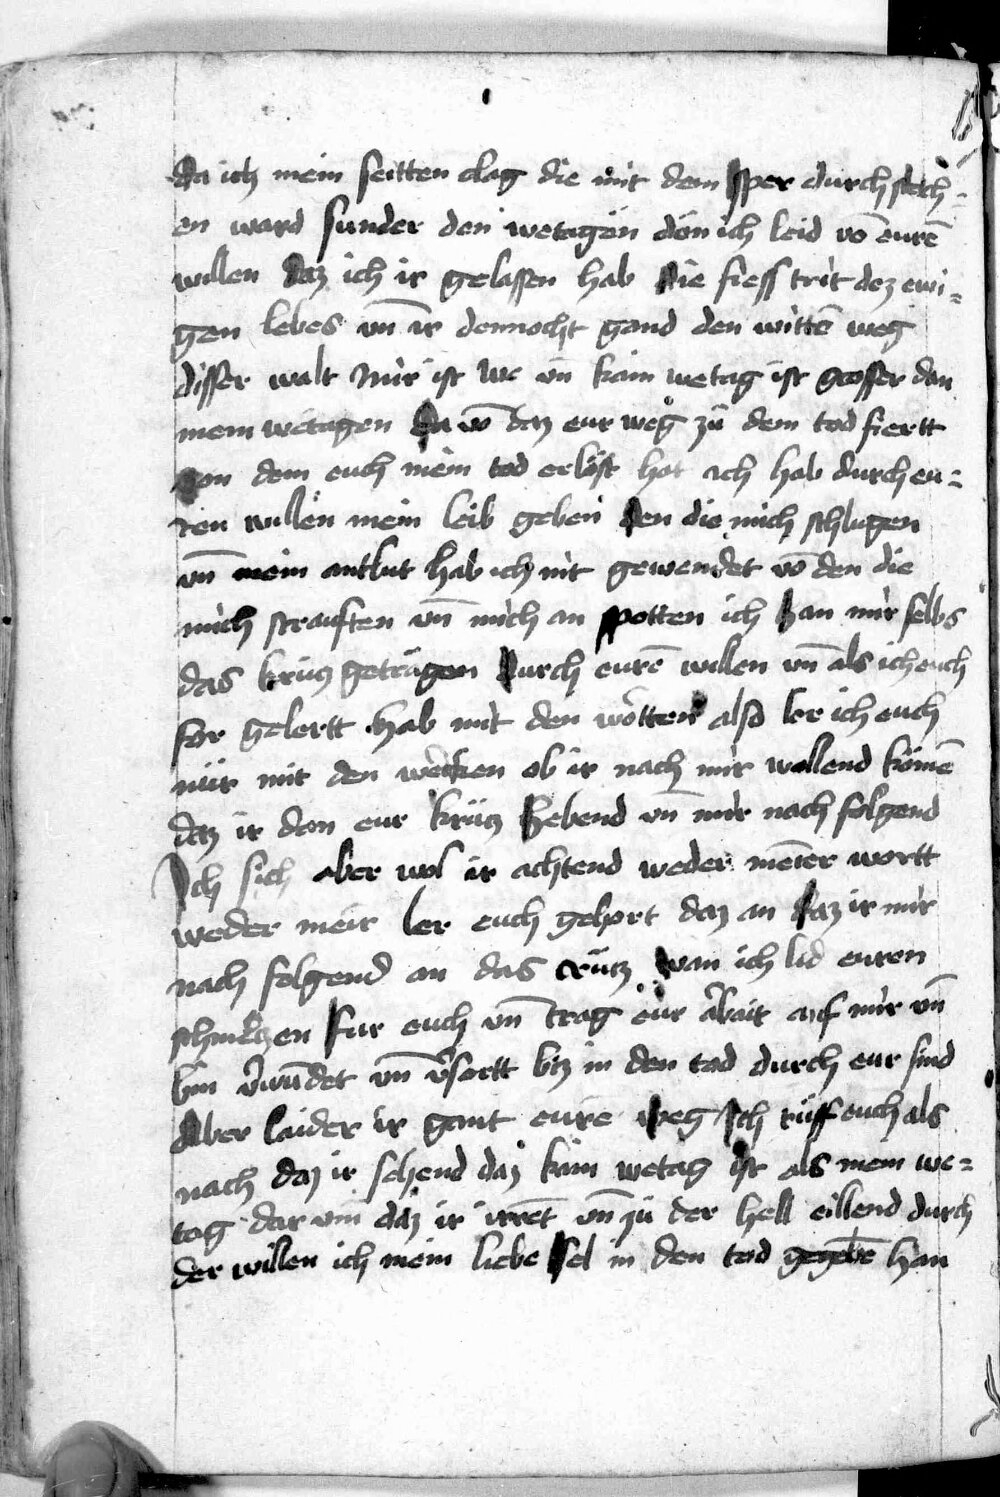 da ich mein seitten clag die mit dem sper durch stech-
en ward sunder den wetagän dön ich leid vō eurē
willen daz ich ir gelassen hab die fiess trit dez ewi-
gen lebes vn̄ ir dennocht gand den wittē weg
disser walt Mir ist we vn̄ kain wetag ist grosser dan
mein wetagen da vō daz eur weg zů dem tod fiertt
von dem euch mein tod erlöst hat ich hab durch eu-
ren willen mein leib geben den die mich schlugen
vn̄ mein antlut hab ich nit gewendet vō den die
mich strauften vn̄ mich an spotten ich han mir selbs
das krütz geträgen durch eurē willen vn̄ als ich euch
for gelertt hab mit den wortten also ler ich euch
nür mit den wercken ob ir nach mir wollend kömē
daz ir don eur krütz hebend vn̄ mir nach folgend
Ich sich aber wol ir achtend weder meīer wortt
weder meir ler euch gehort daz an daz ir mir
nach folgend an das crütz wan ich lid euren
schmertzen fur euch vn̄ trag eur arbait auf mir vn̄
bin v̄wūdet vn̄ v̄sertt bitz in den tod durch eur sind
Aber laider ir gant eure weg Ich rüff euch als
nach daz ir sehend daz kain wetag ist als mein we-
tag dar vm̄ daz ir irrēt vn̄ zů der hell eillend durch
der willen ich mein liebe sel in den tod gegebē han